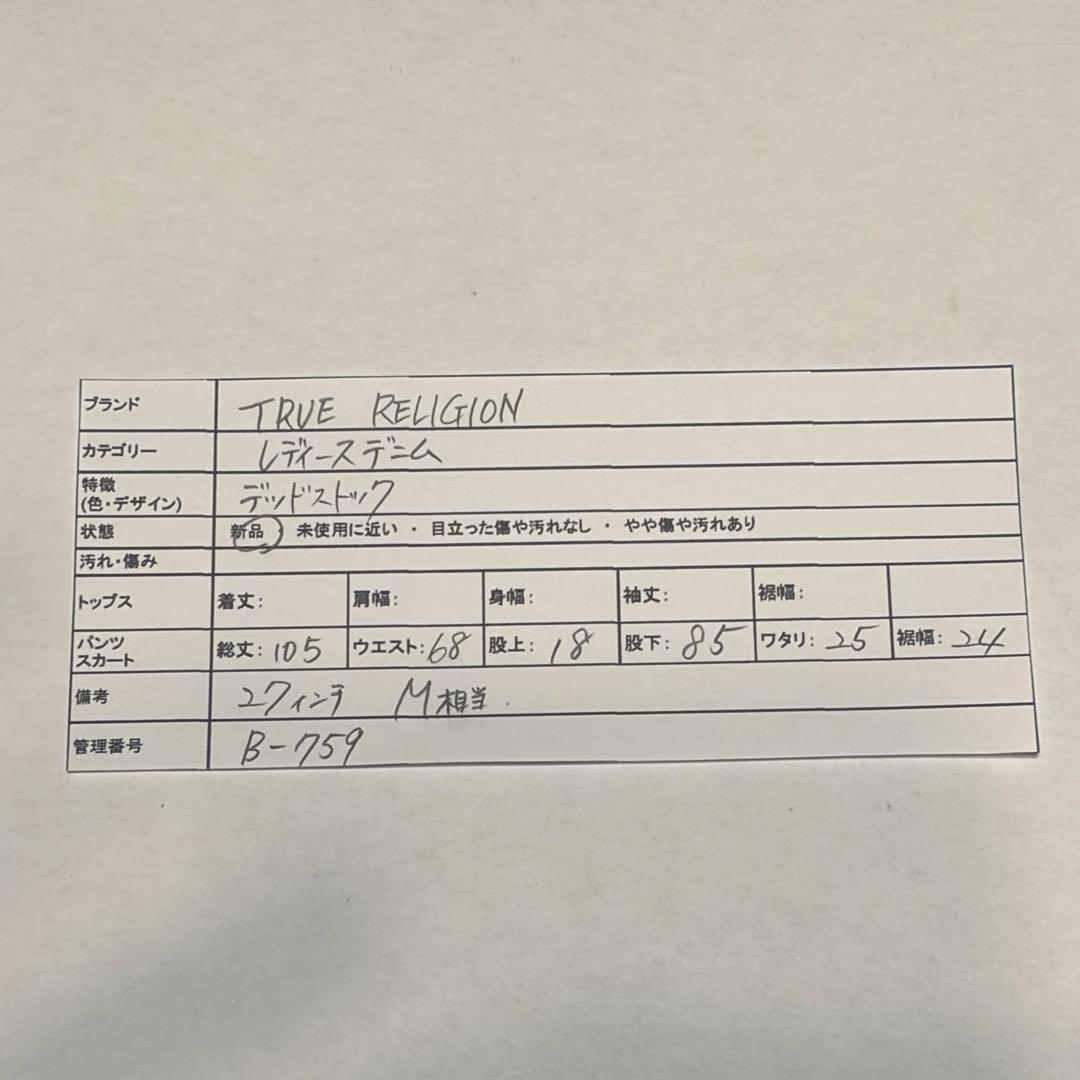 ブランド TRUE RELIGION
カテゴリー レディースデニム
特徴
(色・デザイン) デッドストック
状態 新品 未使用に近い ・ 目立った傷や汚れなし ・ やや傷や汚れあり
汚れ・傷み
トップス 着丈: 肩幅: 身幅: 袖丈: 裾幅:
パンツ
スカート 総丈: 105 ウエスト: 68 股上: 18 股下: 85 ワタリ: 25 裾幅: 24
備考 27インチ M相当.
管理番号 B-759